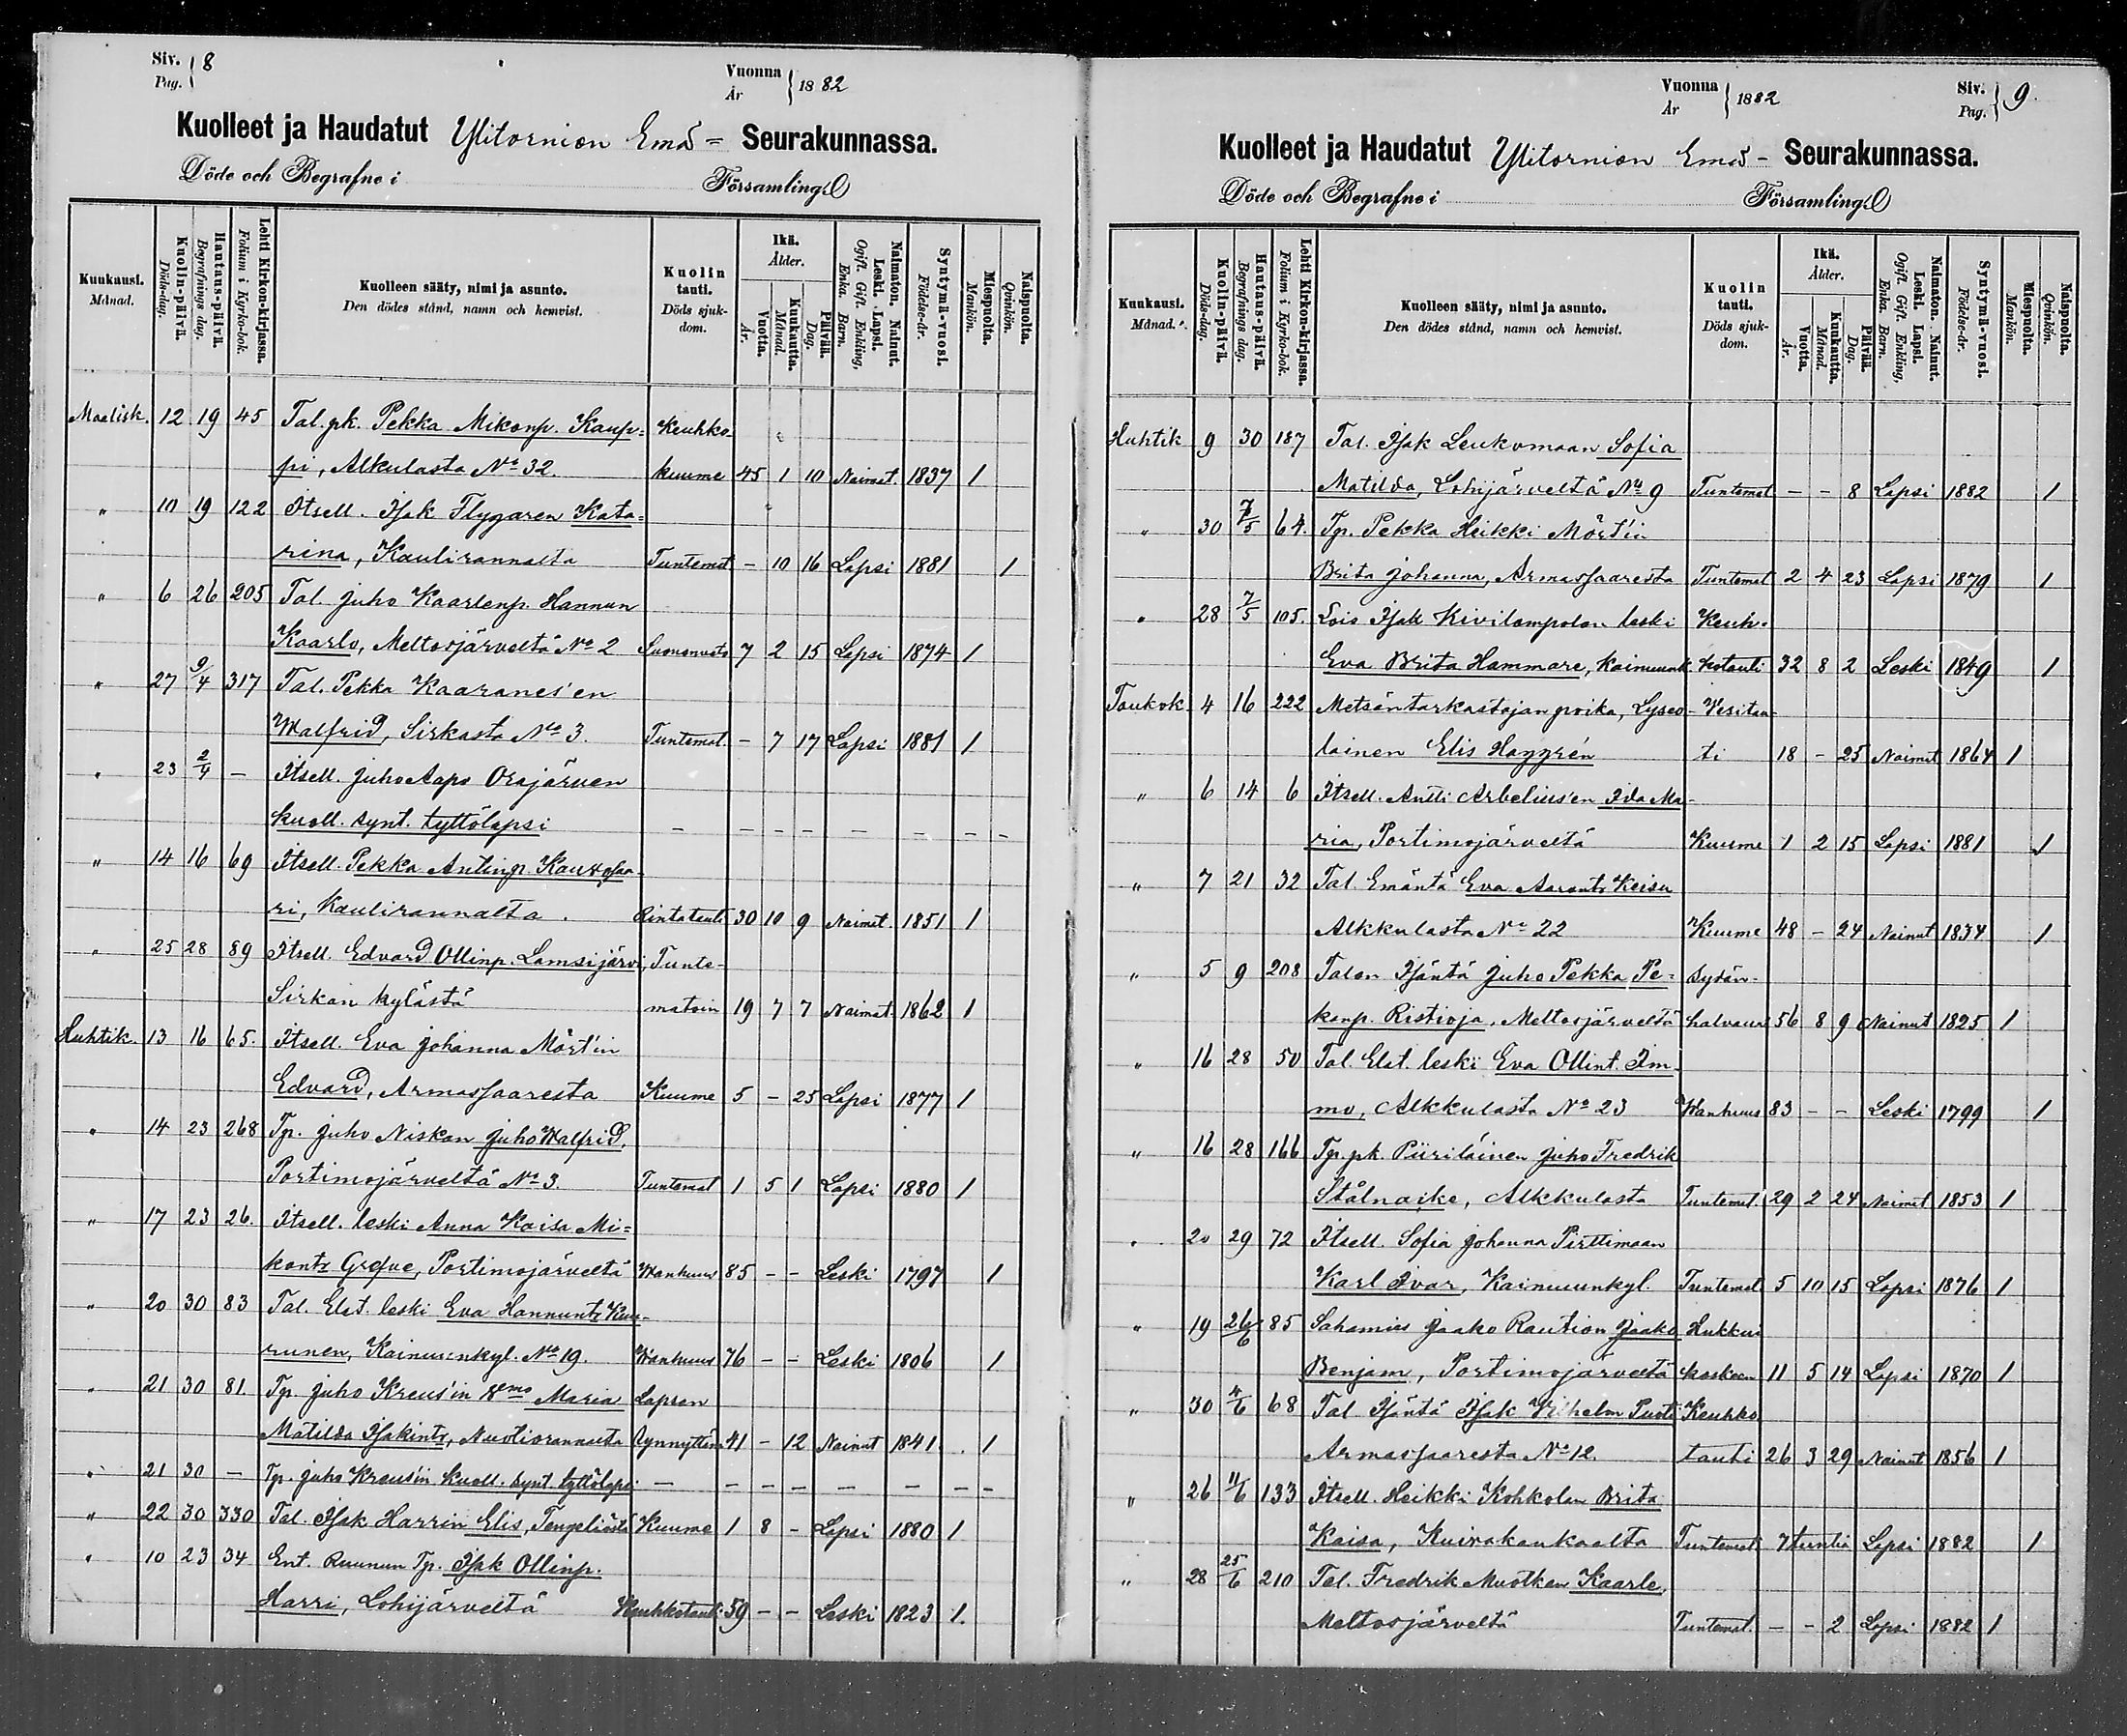 Siv. 8
Pag.
Vuonna 1882
År
Kuolleet ja Haudatut Ylitornion Emä= Seurakunnassa.
Döde och Begrafne i Församling.
Kuukausi. Månad.
Kuolin-päivä. Döds-dag.
Hautaus-päivä. Begrafnings dag.
Lehti Kirkon-kirjassa. Folium i Kyrko-bok.
Kuolleen sääty, nimi ja asunto. Den dödes stånd, namn och hemvist.
Kuolin tauti. Döds sjukdom.
Ikä. Ålder.
Vuotta. År.
Kuukautta. Månad.
Päivää. Dag.
Naimaton. Nainut. Leski. Lapsi. Ogift. Gift. Enkling, Enka. Barn.
Syntymä-vuosi. Födelse-år.
Miespuolta. Mankön.
Naispuolta. Qvinkön.
Maalisk. 12 19 45 Tal. pk. Pekka Mikonp. Kaup= Keuhko-
pi, Alkulasta No 32. kuume 45 1 10 Naimat. 1837 1
" 10 19 122 Itsell. Isak Flygaren Kata=
rina, Kaulirannalta Tuntemat – 10 16 Lapsi 1881 1
" 6 26 205 Tal. Juho Kaarlenp. Hannun
Kaarlo, Meltosjärveltä No 2 7 2 15 Lapsi 1874 1
" 27 9/4 317 Tal. Pekka Kaaranes'en
Walfrid, Sirkasta No 3. Tuntemat. – 7 17 Lapsi 1881 1
" 23 2/4 – Itsell. Juho Aapo Orajärven
kuoll. synt. tyttölapsi – – – – – – – –
" 14 16 69 Itsell. Pekka Antinp. Kauttosaa-
ri, Kaulirannalta. Rintatauti 30 10 9 Naimat. 1851 1
" 25 28 89 Itsell. Edvard Ollinp. Lamsijärvi, Tunte-
Sirkan kylästä matoin 19 7 7 Naimat. 1862 1
Huhtik. 13 16 65. Itsell. Eva Johanna Mört'in
Edvard, Armassaaresta Kuume 5 – 25 Lapsi 1877 1
" 14 23 268 Tp. Juho Niskan Juho Walfrid,
Portimojärveltä No 3. Tuntemat 1 5 1 Lapsi 1880 1
" 17 23 26. Itsell. leski Anna Kaisa Mi=
kontr Grefve, Portimojärveltä Wanhuus 85 – – Leski 1797 1
" 20 30 83 Tal. Elät. leski Eva Hannuntr
runen, Kainuunkyl. No 19. Wanhuus 76 – – Leski 1806 1
" 21 30 81. Tp. Juho Kreus'in Maria Lapsen
Matilda Isakintr, Nuotiorannalta synnyttäm. 41 – 12 Nainut 1841. 1
" 21 30 – Tp. Juho Kreus'in kuoll. synt. tyttölapsi – – – – – – – –
" 22 30 330 Tal. Isak Harrin Elis, Tengeliöstä Kuume 1 8 – Lapsi 1880 1
" 10 23 34 Ent. Ruunun Tp. Isak Ollinp.
Harri, Lohijärveltä Keuhkotauti 59 – – Leski 1823 1.
Vuonna 1882
År
Siv. 9.
Pag.
Kuolleet ja Haudatut Ylitornion Emä- Seurakunnassa.
Döde och Begrafne i Församling.
Kuukausi. Månad.
Kuolin-päivä. Döds-dag.
Hautaus-päivä. Begrafnings dag.
Lehti Kirkon-kirjassa. Folium i Kyrko-bok.
Kuolleen sääty, nimi ja asunto. Den dödes stånd, namn och hemvist.
Kuolin tauti. Döds sjukdom.
Ikä. Ålder.
Vuotta. År.
Kuukautta. Månad.
Päivää. Dag.
Naimaton. Nainut. Leski. Lapsi. Ogift. Gift. Enkling, Enka. Barn.
Syntymä-vuosi. Födelse-år.
Miespuolta. Mankön.
Naispuolta. Qvinkön.
Huhtik 9 30 187 Tal. Isak Leukomaan Sofia
Matilda, Lohijärveltä No 9 Tuntemat – – 8 Lapsi 1882 1
" 30 7/5 64. Tp. Pekka Heikki Mört'in
Brita Johanna, Armassaaresta Tuntemat 2 4 23 Lapsi 1879 1
" 28 7/5 105. Lois Isak Kivilompolon leski Keuh-
Eva Brita Hammare, Kainuunk. kotauti 32 8 2 Leski 1849 1
Toukok. 4 16 222 Metsäntarkastajan poika, Lyseo- Veritau-
lainen Elis Haggrén ti 18 – 25 Naimat 1864 1
" 6 14 6 Itsell. Antti Arbelius'en Ida Ma-
ria, Portimojärveltä Kuume 1 2 15 Lapsi 1881 1
" 7 21 32 Tal. Emäntä Eva Aarontr Keisu
Alkkulasta No 22 Kuume 48 – 24 Nainut 1834 1
" 5 9 208 Talon Isäntä Juho Pekka Pe= Sydän-
kanp. Ristioja, Meltosjärveltä halvaus 56 8 9 Nainut 1825 1
" 16 28 50 Tal. Elät. leski Eva Ollint. Im-
mo, Alkkulasta No 23 Wanhuus 83 – – Leski 1799 1
" 16 28 166 Tp. pk. Piiriläinen Juho Fredrik
Stålnacke, Alkkulasta Tuntemat. 29 2 24 Naimat 1853 1
" 20 29 72 Itsell. Sofia Johanna Pirttimaan
Karl Ivar, Kainuunkyl. Tuntemat 5 10 15 Lapsi 1876 1
" 19 26/6 85 Sahamies Jaako Raution Jaako Hukkui
Benjam, Portimojärveltä koskeen 11 5 14 Lapsi 1870 1
" 30 4/6 68 Tal Isäntä Isak Wilhelm Puoti Keuhko
Armassaaresta No 12. tauti 26 3 29 Nainut 1856 1
" 26 11/6 133 Itsell. Heikki Kohkolan Brita
Kaisa, Kuivakankaalta Tuntemat. 7 tuntia Lapsi 1882 1
" 28 25/6 210 Tal. Fredrik Muotkan Kaarle,
Meltosjärveltä Tuntemat. – – 2 Lapsi 1882 1